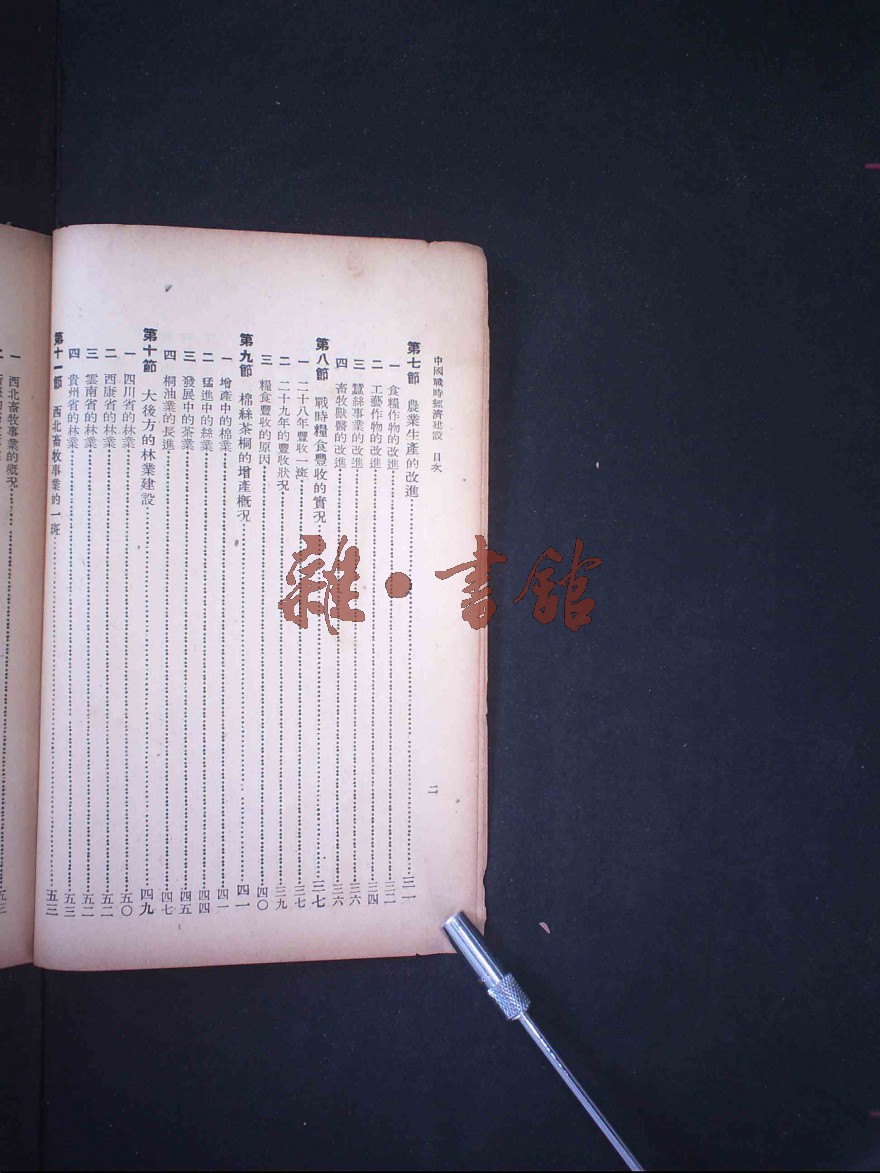 中國戰時經濟建設 目次
二
第七節 農業生產的改進……三一
一 食糧作物的改進……三二
二 工藝作物的改進……三四
三 蠶絲事業的改進……三六
四 畜牧獸醫的改進……三六
第八節 戰時糧食豐收的實況……三七
一 二十八年豐收一斑……三七
二 二十九年的豐收狀況……三九
三 糧食豐收的原因……四〇
第九節 棉絲茶桐的增產概況……四一
一 增產中的棉業……四一
二 猛進中的絲業……四四
三 發展中的茶業……四五
四 桐油業的長進……四七
第十節 大後方的林業建設……四九
一 四川省的林業……五〇
二 西康省的林業……五二
三 雲南省的林業……五二
四 貴州省的林業……五三
第十一節 西北畜牧事業的一斑……五三
一 西北畜牧事業的概況……五三
雜·書館